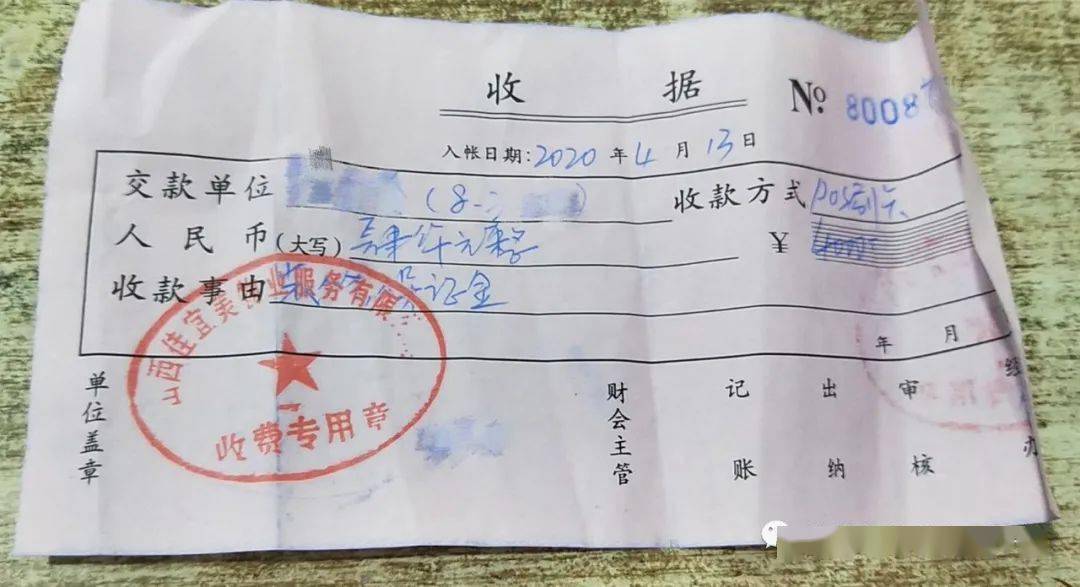 收 据 № 8008
入帐日期:2020年4月13日
交款单位 (8- ) 收款方式 POS刷卡
人民币(大写) 肆仟元整 ¥
收款事由 装修保证金
年 月
山西佳宜美物业服务有限
收费专用章
单位盖章 财会主管 记账 出纳 审核 经办